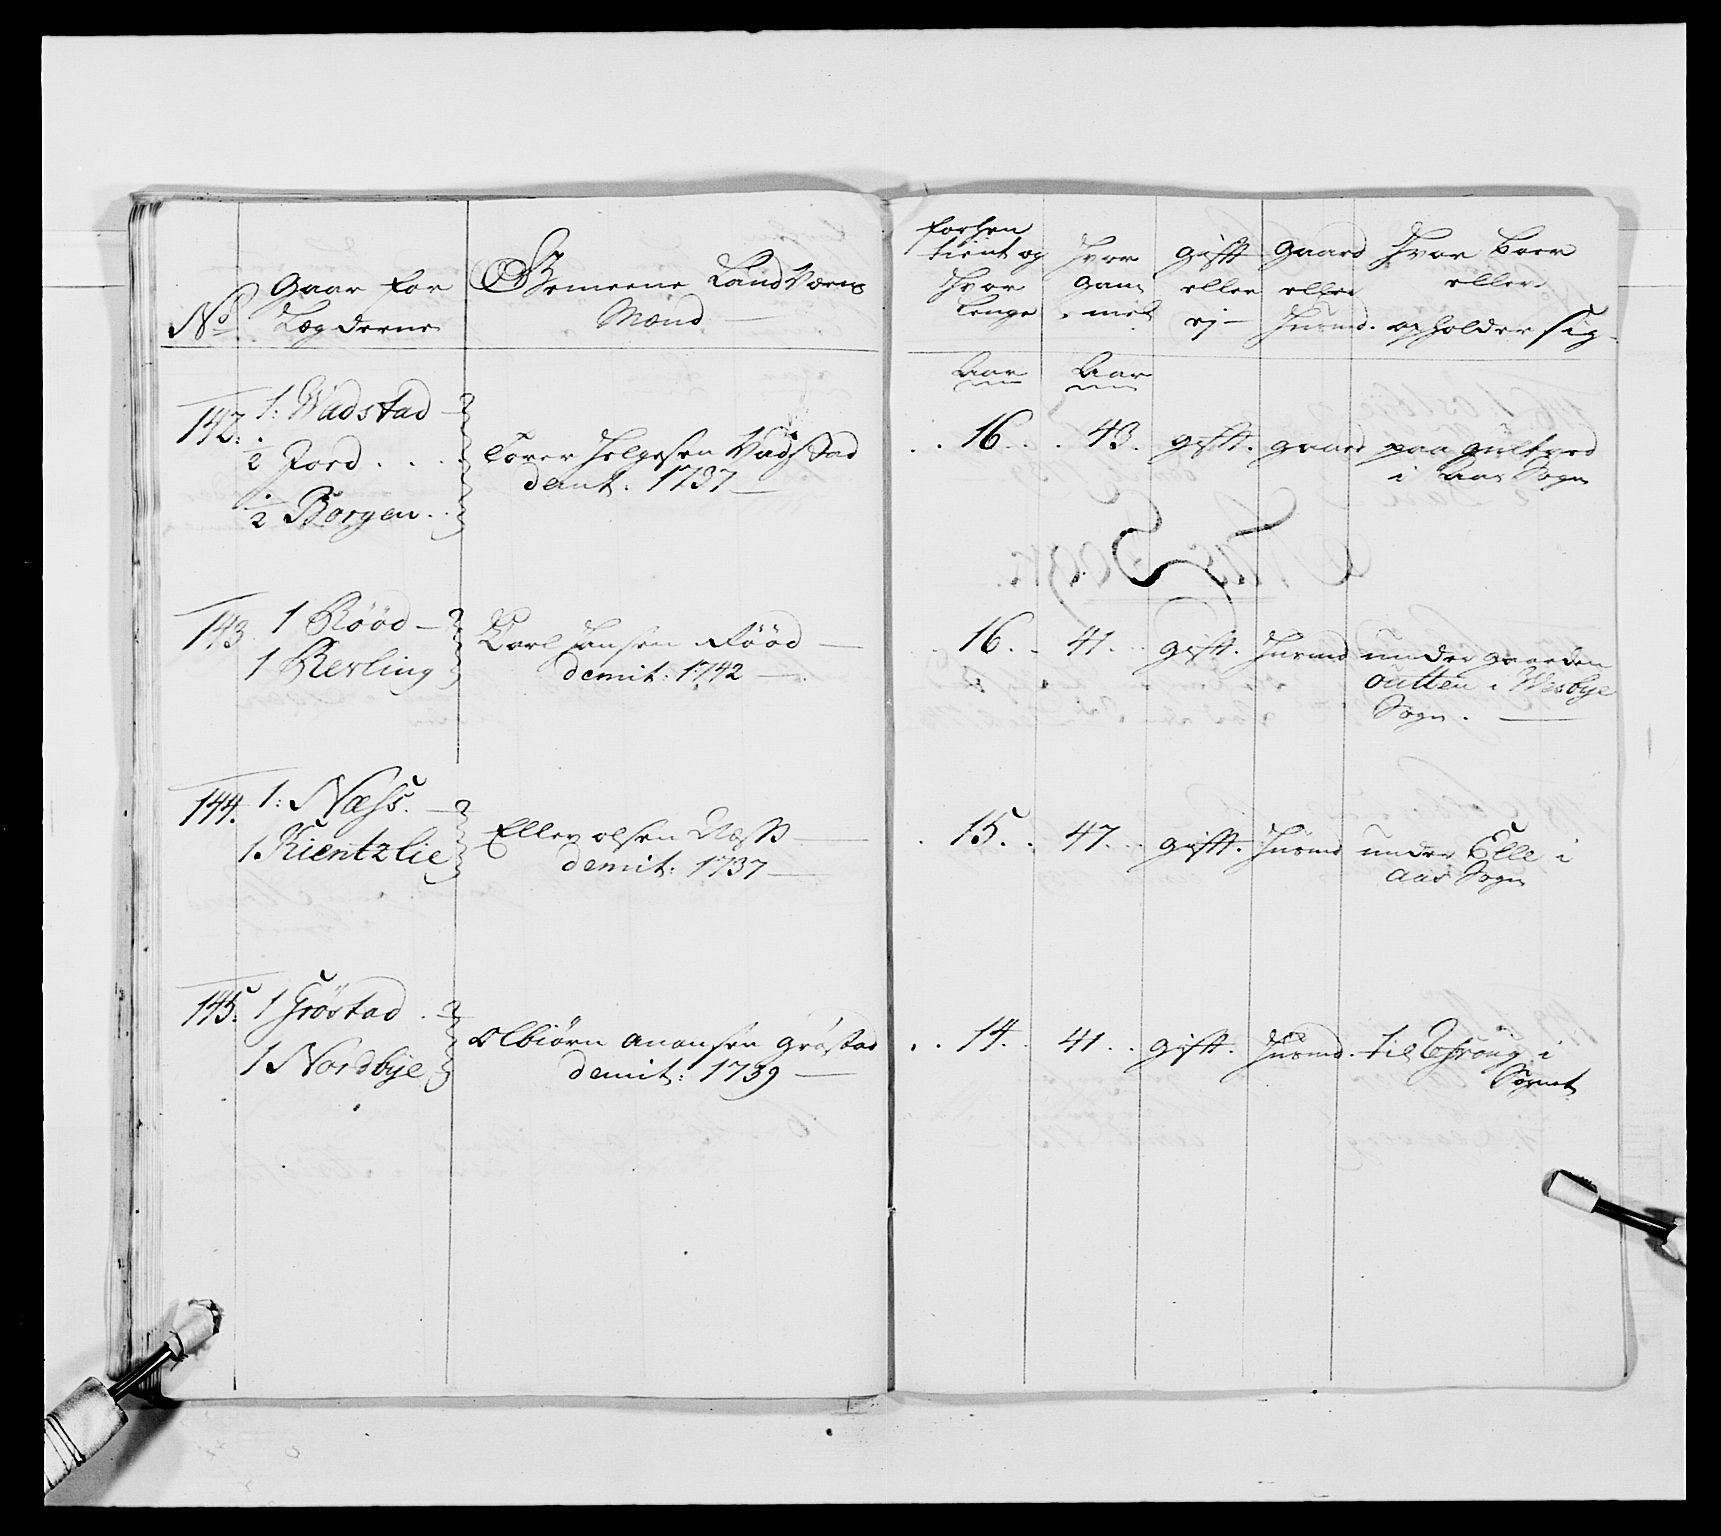 No
Gaar for
Lægderne
Gemeene Land Værns
Mænd
forhen
tient og
Hvor
Lenge
Hvor
Gam
mel
gift
eller
ej
Gaard
eller
Husmd.
Hvor Boer
eller
opholder sig
Aar
Aar
142: 1: Wadstad
1/2 Jord
1/2 Borgen
Torer Helgesen Vadstad
demt. 1737
16. 43. gift. gaard paa
i Aas Sogn
143 1 Rööd
1 Kerling
Carl Hansen Rööd
demit: 1742
16. 41. gift. Husmd under gaarden
Outten i Wesbye
Sogn.
144. 1: Næss.
1 Kientzlie
Ellev olsen Næss
demit: 1737
15. 47. gift. Husmd under Elle i
Aas Sogn
145: 1 Gröstad
1 Nordbye
Olbiörn Anonsen Gröstad
demit: 1739
14. 41. gift. Husmd. til i
Sognet